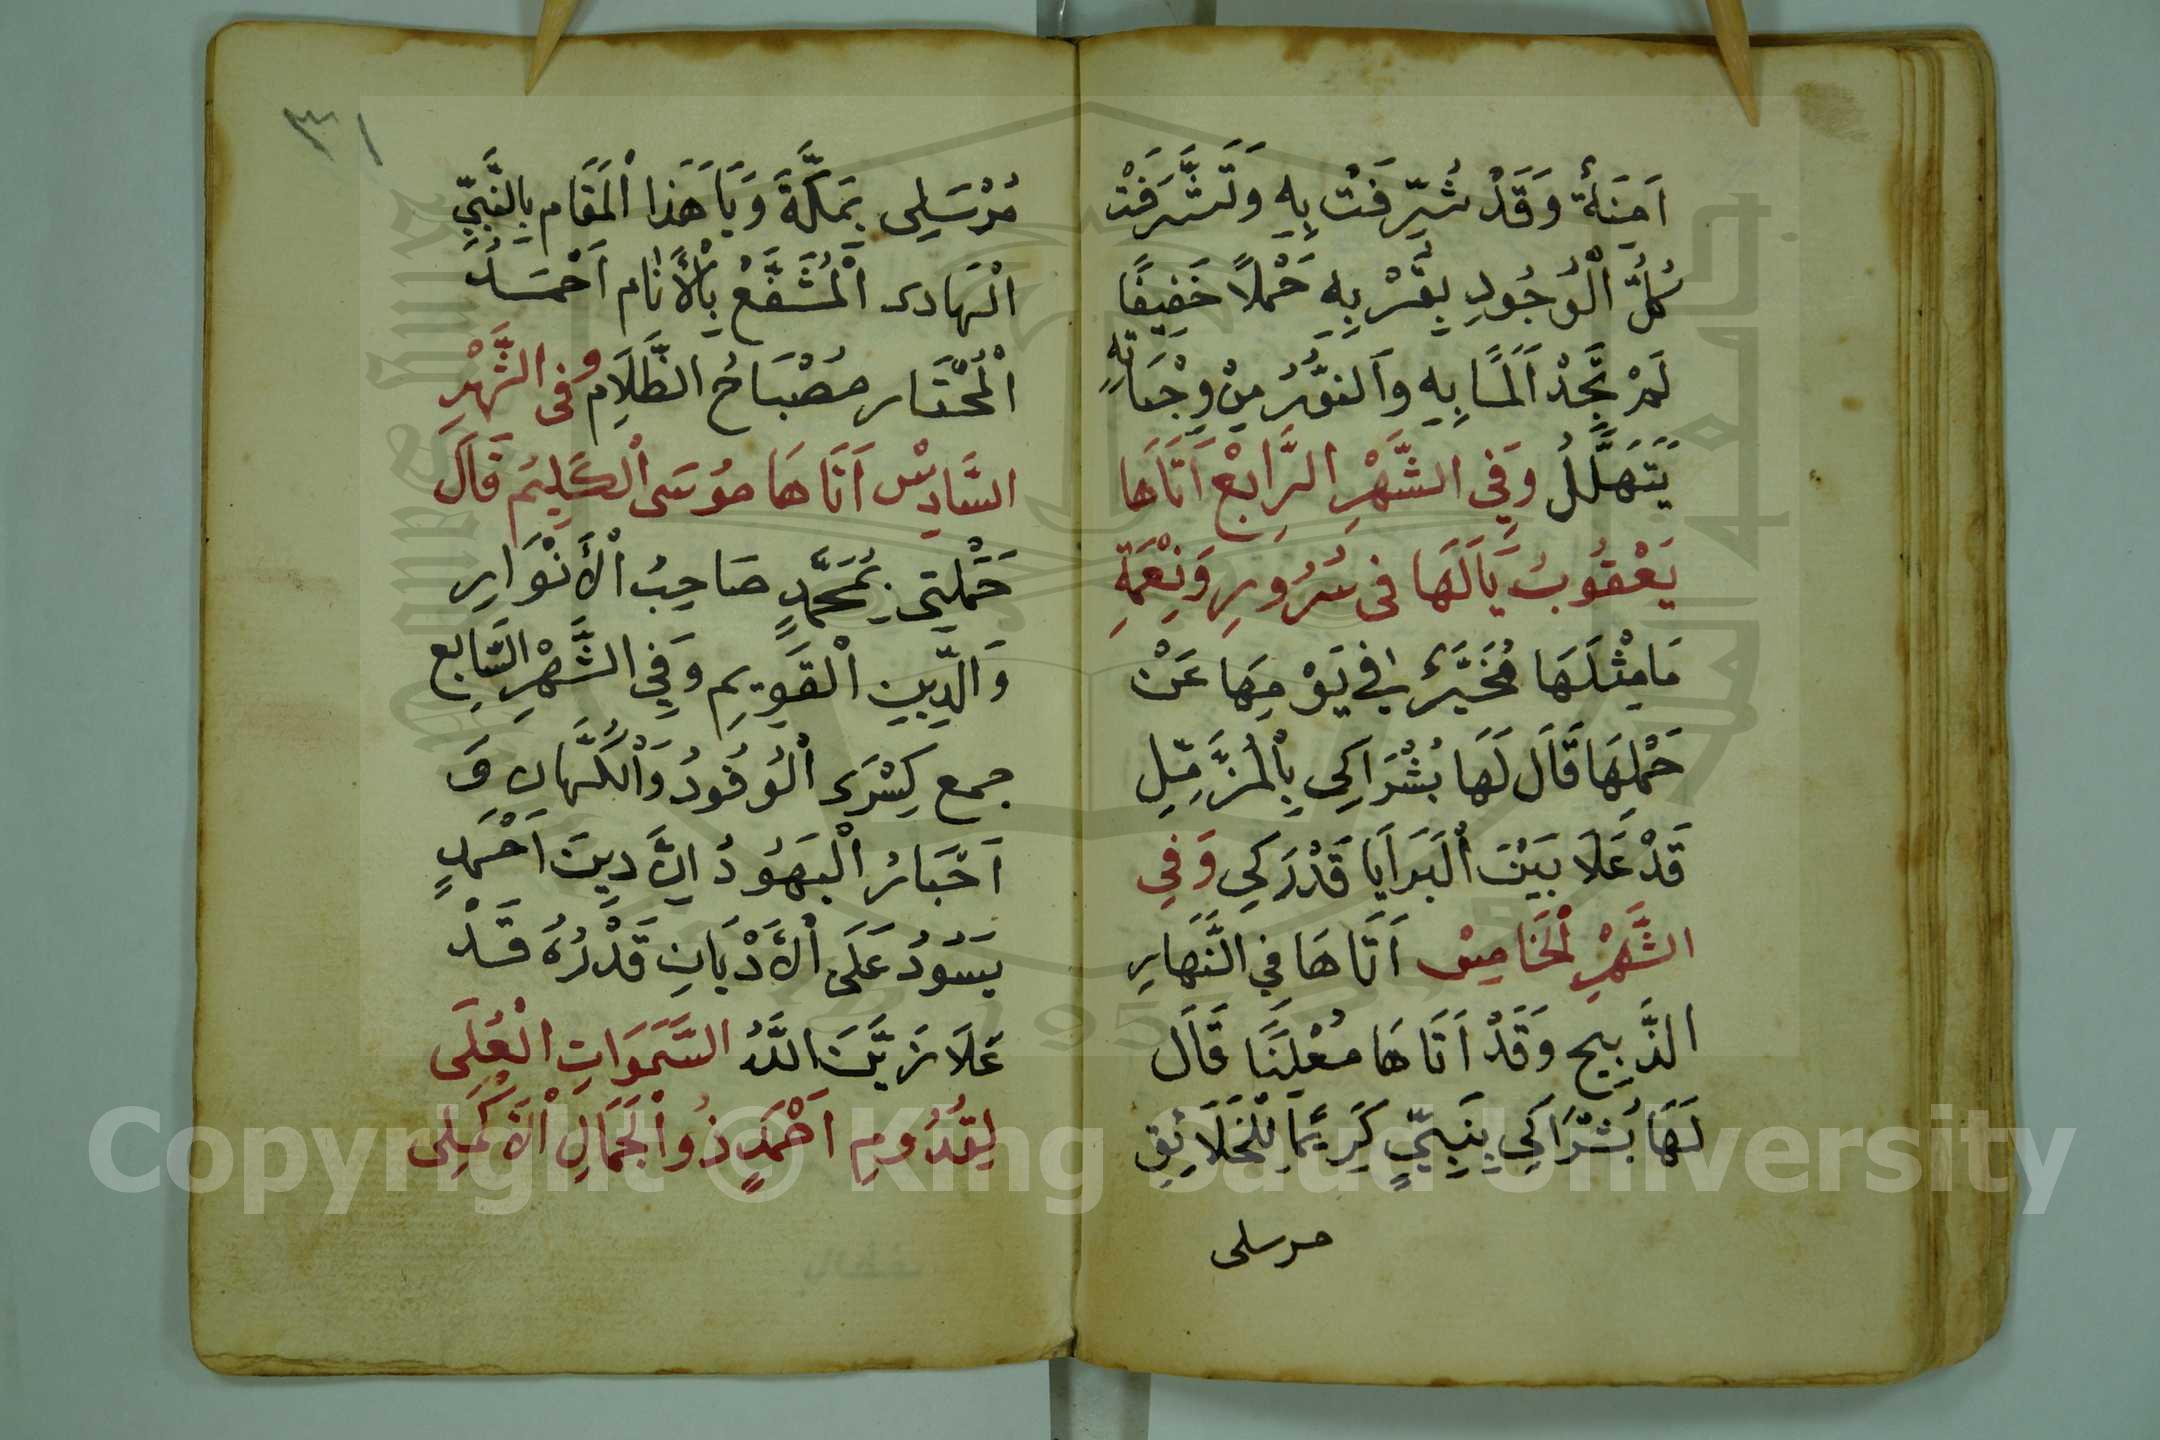 اَمِنَةٌ وَقَدْ شُرِّفَتْ بِهِ وَتَشَّرَفَتْ
كُلُّ الْوُجُودِ بِقُرْبِهِ حَمْلاً خَفِيفًا
لَمْ تَجِدْ اَلَمًا بِهِ وَالنُّورُ مِنْ وِجْنَاتِهِ
يَتَهَلَّلُ وَفِي الشَّهْرِ الرَّابِعْ اَتَاهَا
يَعْقُوبُ يَالَهَا فى سُرُورِ وَنِعْمَةِ
مَامِثْلَهَا مُخَيَّرٌ فِي يَوْمِهَا عَنْ
حَمْلِهَا قَالَ لَهَا بُشْرَاكِى بِالْمُزَّمِّلِ
قَدْ عَلَا بَيْنَ الْبَرَايَا قَدْرَكِى وَفِي
الشَّهْرِ الْخَامِسْ اَتَاهَا فِي النَّهَارِ
الذَّبِيح وَقَدْ اَتَاهَا مُعْلِنًا قَالَ
لَهَا بُشْرَاكِى بِنَبِيٍّ كَرِيمًا لِلْخَلَائِقِ
مرسلى
٣١
مُرْسَلِى بِمَكَّةَ وَيَا هَذَا الْمَقَام بِالنَّبِيِّ
الْهَادى الْمُشَفَّعْ بِالْأَنَام اَحْمَدُ
الْمُخْتَار مُصْبَاحُ الظَّلَامِ وفى الشَّهْرِ
السَّادِسْ اَتَاهَا مُوسَى الْكَلِيمُ قَالَ
حَمَلْتِى بِمُحَمَّدٍ صَاحِبُ الْأَنْوَارِ
وَالدِّينِ الْقَوِيمِ وَفِي الشَّهْرِ السَّابِع
جمع كِسْرَى الْوُفُودُ وَالْكُهَّانِ وَ
اَحْبَارُ الْيَهُودُ اِنَّ دِينَ اَحْمَدٍ
يَسُودُ عَلَى الْأَدْيَانِ قَدْرُهُ قَدْ
عَلَا زَيَّنَ اللَّهُ السَّمَوَاتِ الْعُلَى
لِقُدُومِ اَحْمَدٍ ذُو الْجَمَالِ الْأَكْمَلِى
Copyright © King Saud University